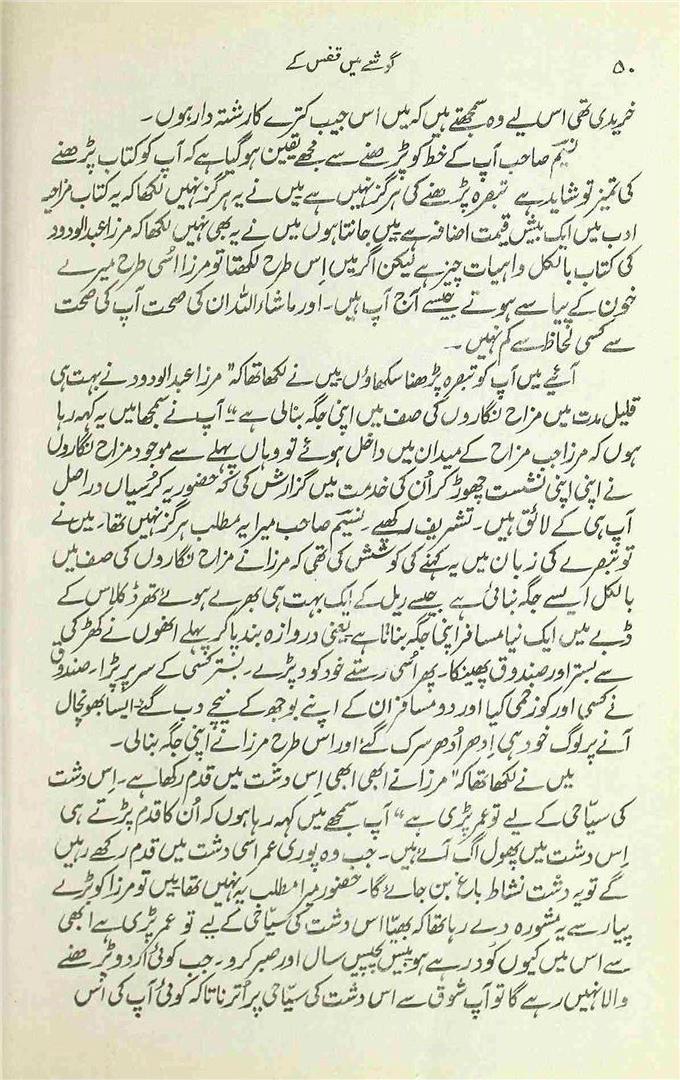 ۵۰
گوشے میں قفس کے
خریدی تھی اس لیے وہ سمجھتے ہیں کہ میں اس جیب کترے کا رشتہ دار ہوں۔
نسیم صاحب آپ کے خط کو پڑھنے سے مجھے یقین ہو گیا ہے کہ آپ کو کتاب پڑھنے
کی تمیز تو شاید ہے تبصرہ پڑھنے کی ہرگز نہیں ہے میں نے یہ ہرگز نہیں لکھا کہ یہ کتاب مزاحیہ
ادب میں ایک بیش قیمت اضافہ ہے میں جانتا ہوں میں نے یہ بھی نہیں لکھا کہ مرزا عبدالودود
کی کتاب بالکل واہیات چیز ہے لیکن اگر میں اِس طرح لکھتا تو مرزا اسُی طرح میرے
خون کے پیاسے ہوتے جیسے آج آپ ہیں۔ اور ماشاء اللہ ان کی صحت آپ کی صحت
سے کسی لحاظ سے کم نہیں۔
آئیے میں آپ کو تبصرہ پڑھنا سکھاؤں میں نے لکھا تھا کہ "مرزا عبدالودود نے بہت ہی
قلیل مدت میں مزاح نگاروں کی صف میں اپنی جگہ بنالی ہے"۔ آپ نے سمجھا میں یہ کہہ رہا
ہوں کہ مرزا جب مزاح کے میدان میں داخل ہوئے تو وہاں پہلے سے موجود مزاح نگاروں
نے اپنی اپنی نشست چھوڑ کر اُن کی خدمت میں گزارش کی کہ حضور یہ کرسیاں دراصل
آپ ہی کے لائق ہیں۔ تشریف رکھیے۔ نسیم صاحب میرا یہ مطلب ہرگز نہیں تھا۔ میں نے
تو تبصرے کی زبان میں یہ کہنے کی کوشش کی تھی کہ مرزا نے مزاح نگاروں کی صف میں
بالکل ایسے جگہ بنائی ہے جیسے ریل کے ایک بہت ہی بھرے ہوئے تھرڈ کلاس کے
ڈبے میں ایک نیا مسافر اپنی جگہ بناتا ہے یعنی دروازہ بند پا کر پہلے انھوں نے کھڑکی
سے بستر اور صندوق پھینکا۔ پھر اُسی رستے خود کود پڑے۔ بستر کسی کے سر پر پڑا۔ صندوق
نے کسی اور کو زخمی کیا اور دو مسافر ان کے اپنے بوجھ کے نیچے دب گئے۔ ایسا بھونچال
آنے پر لوگ خود ہی اِدھر اُدھر سرک گئے اور اس طرح مرزا نے اپنی جگہ بنالی۔
میں نے لکھا تھا کہ "مرزا نے ابھی ابھی اِس دشت میں قدم رکھا ہے۔ اِس دشت
کی سیاّحی کے لیے تو عمر پڑی ہے" آپ سمجھے میں کہہ رہا ہوں کہ اُن کا قدم پڑتے ہی
اِس دشت میں پھول اُگ آئے ہیں۔ جب وہ پوری عمر اسی دشت میں قدم رکھے رہیں
گے تو یہ دشت نشاط باغ بن جائے گا۔ حضور میرا مطلب یہ نہیں تھا میں تو مرزا کو بڑے
پیار سے یہ مشورہ دے رہا تھا کہ بھیّا اس دشت کی سیّاحی کے لیے تو عمر پڑی ہے ابھی
سے اس میں کیوں کود رہے ہو بیس پچیس سال اور صبر کرو۔ جب کوئی اُردو پڑھنے
والا نہیں رہے گا تو آپ شوق سے اس دشت کی سیّاحی پر اُترنا تاکہ کوئی آپ کی اُس